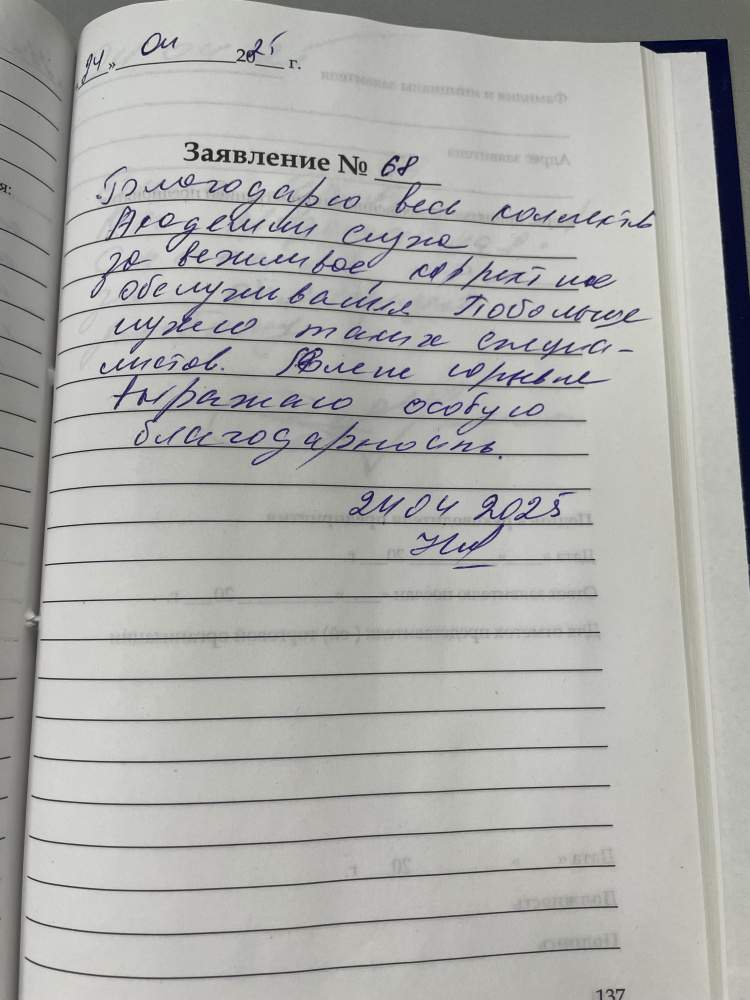 24 » 04 2025 г.
Заявление № 68
Благодарю весь коллектив
Академии слуха
за вежливое, корректное
обслуживания Побольше
нужно таких специа-
листов.
Выражаю особую
благодарность.
24 04 2025
я:
137